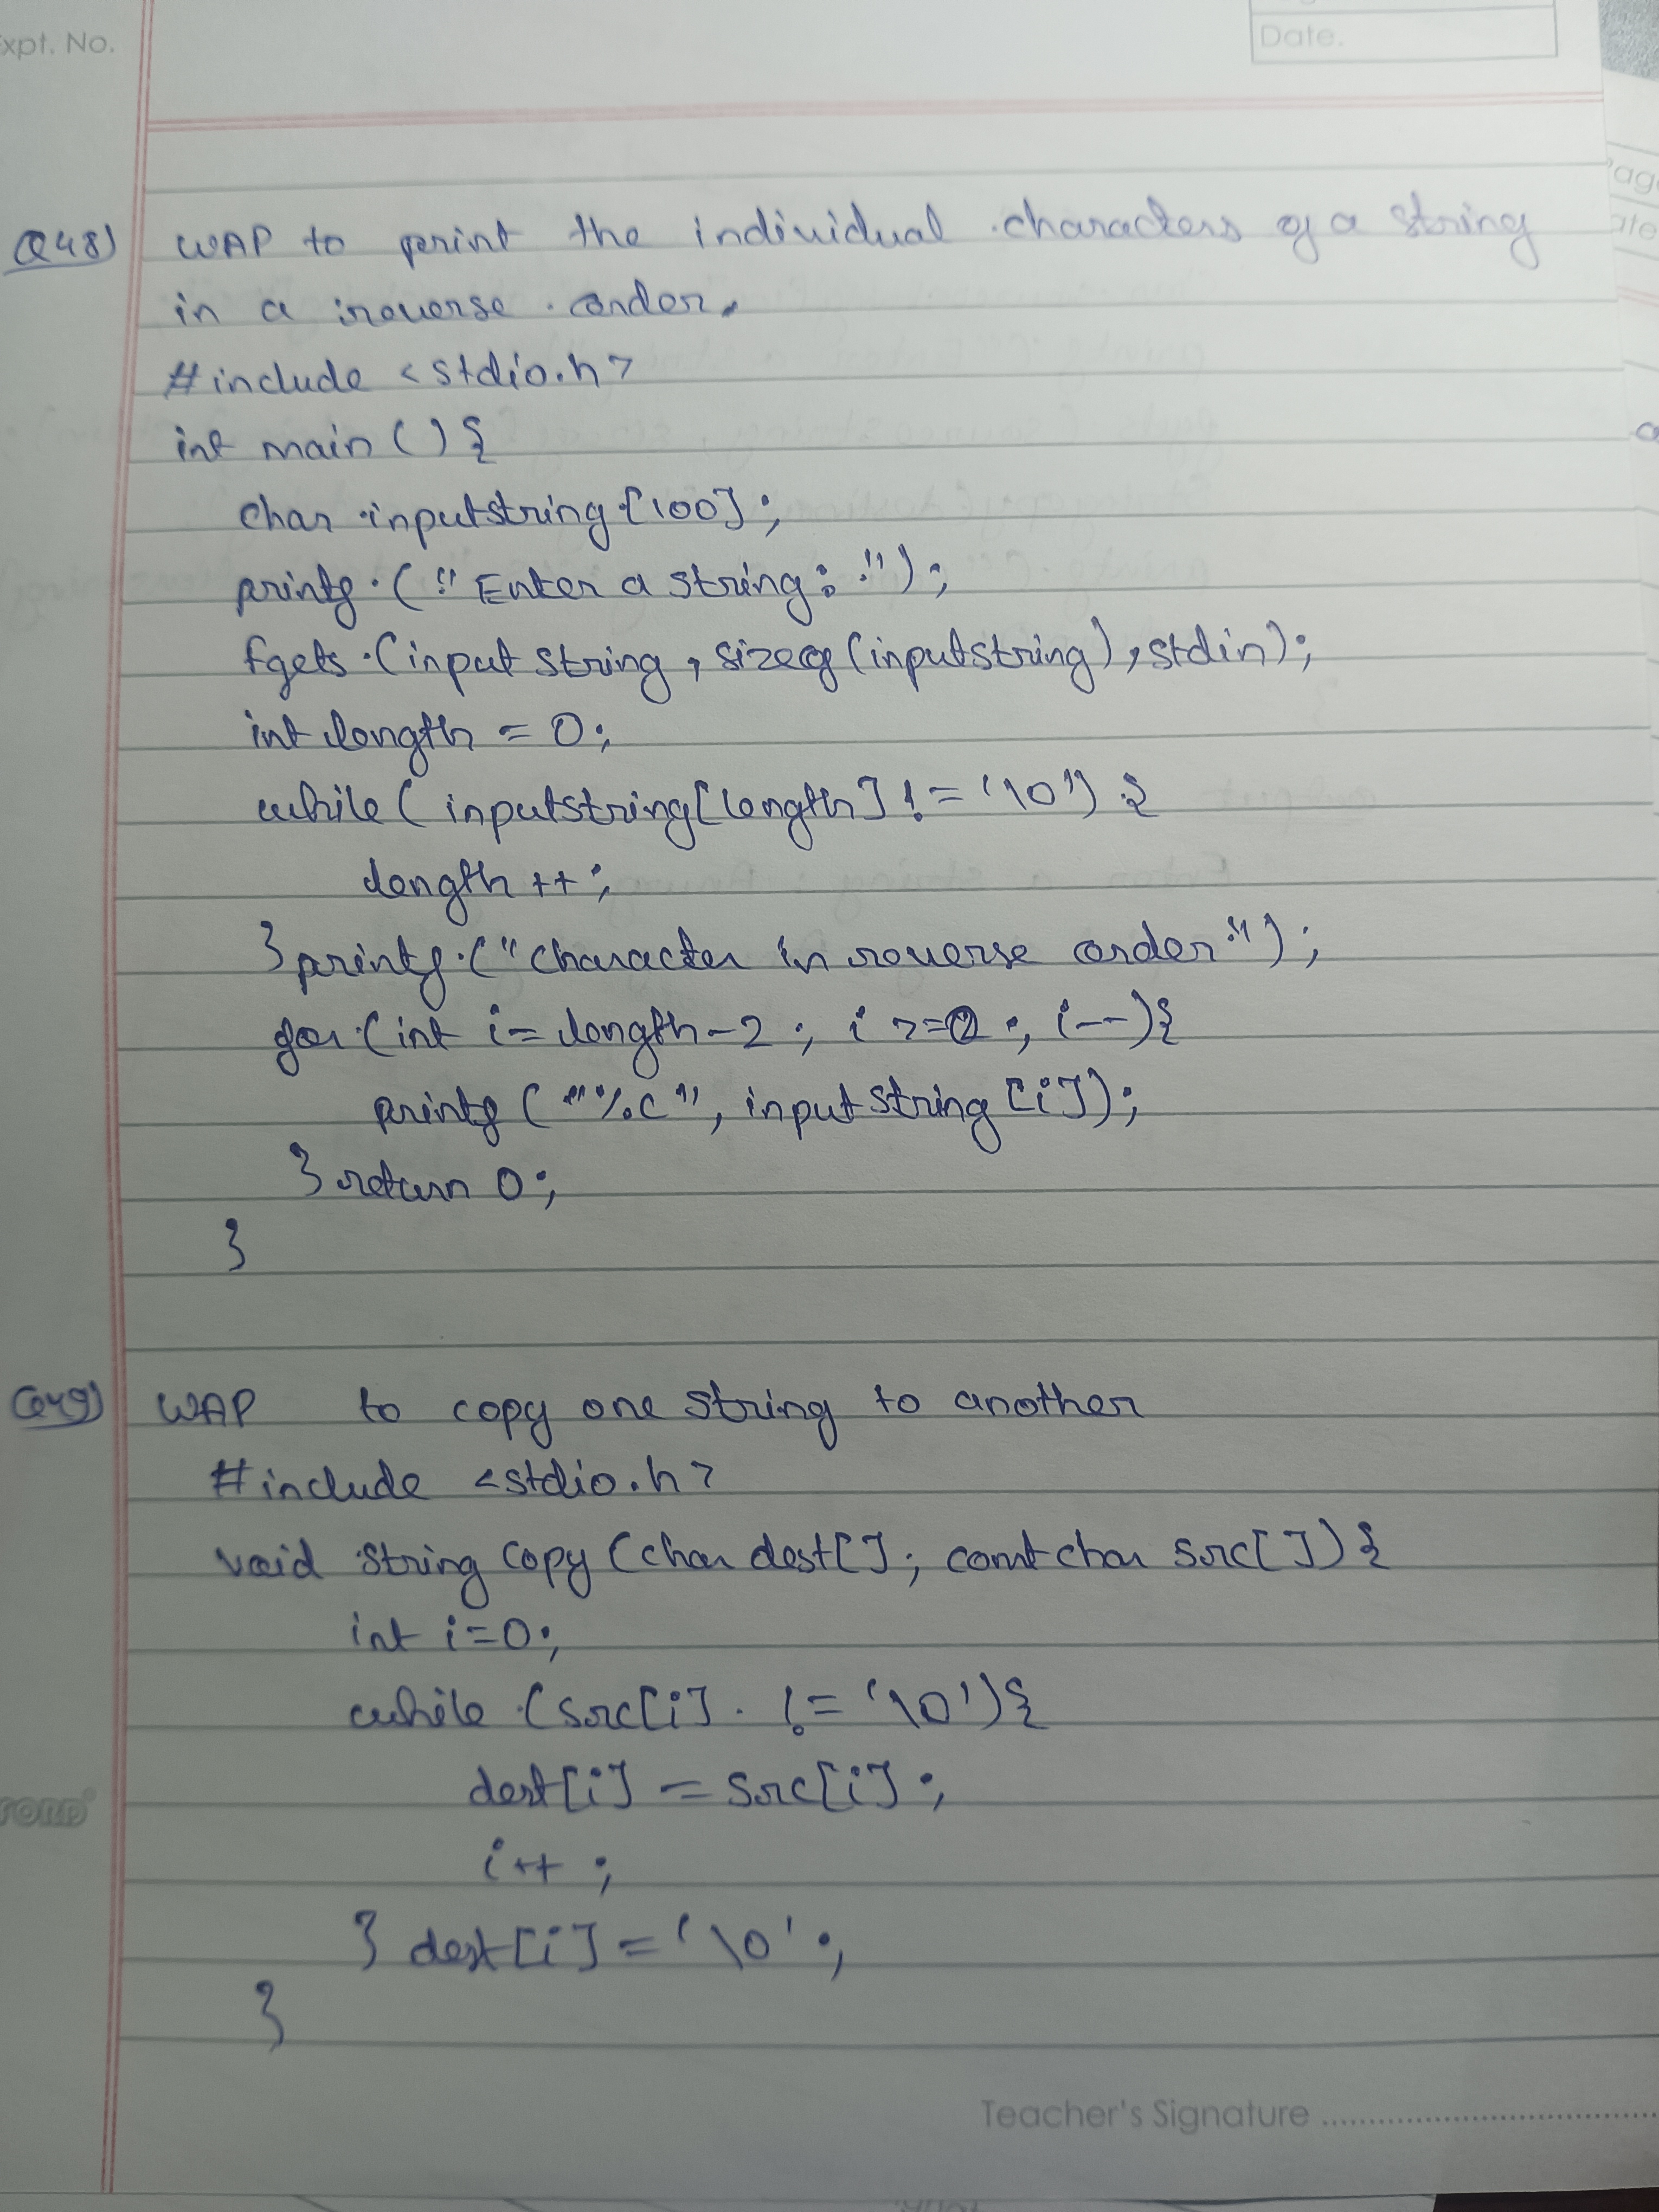 Expt. No.
Date.
Q48) WAP to print the individual characters of a string
in a reverse order.
#include <stdio.h>
int main () {
char inputstring [100];
printf ("Enter a string: ");
fgets (input string, sizeof (inputstring), stdin);
int length = 0;
while ( inputstring [length] != '\0') {
length ++;
} printf ("Character in reverse order");
for (int i = length - 2 ; i >= 0 ; i--) {
printf ("%c", input string [i]);
} return 0;
}
Q49) WAP to copy one string to another
#include <stdio.h>
void string copy (char dest[]; const char src[]) {
int i=0;
while (src[i] != '\0') {
dest[i] = src[i];
i++ ;
} dest[i] = '\0';
}
Teacher's Signature